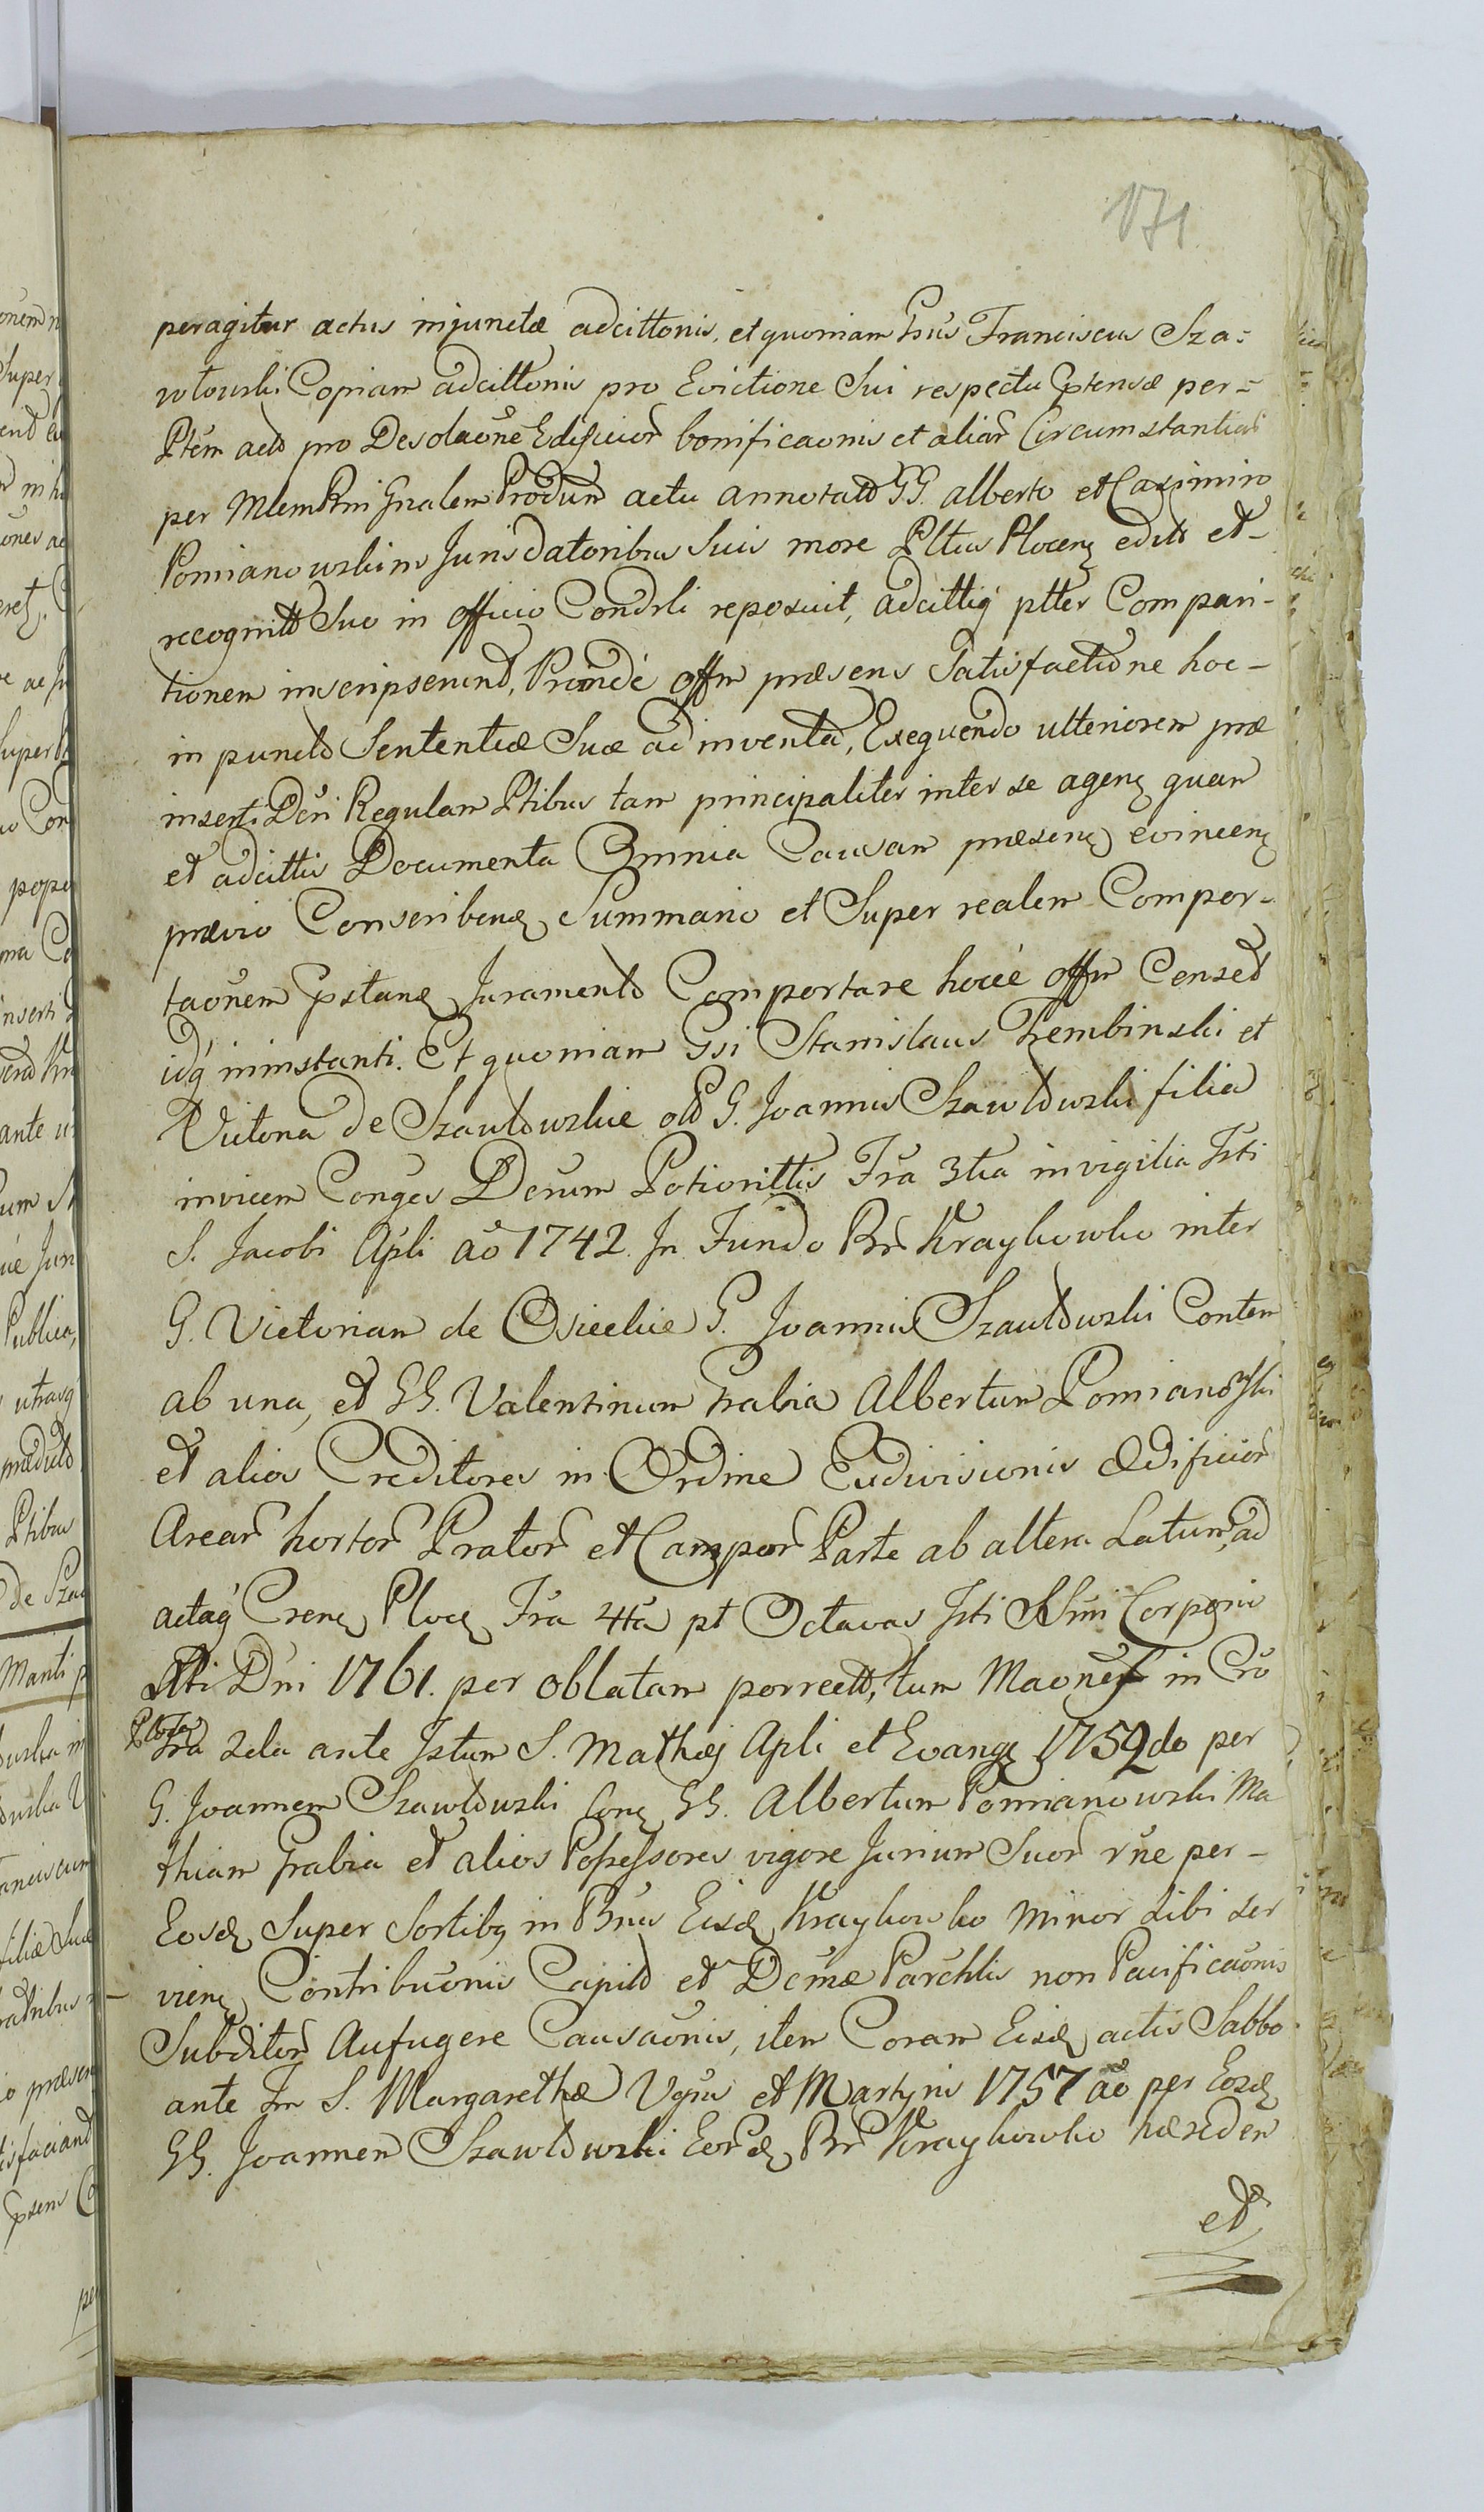 171
peragitur actus injunctæ adcittonis, et quoniam Gsus Franciscus Sza=
włowski Copiam adcittonis pro Evictione Sui respectu prtensæ per=
Ptem actō pro Desolaōne Edificior bonificaonis et aliar Circumstantiar
per Mlem Rni Gnalem Produm actu annotatō GG. alberto et Casimiro
Pomianowskim Juris datoribus Suis more Pltus Plocens edito et
recognitō Suo in officio Condsli reposuit, adcittiq ptter Compari-
tionem inscripserund, Proinde offm præsens Satisfactione hoc-
in punctō Sententiæ Suæ adinventa, Exequendo ulteriorem præ
inserti Dcri Regulam Ptibus tam principaliter inter se agens quam
et adcittis Documenta Omnia Causam præsens evincens
prævio Conscribens Summario et Super realem Compor-
taōnem pstans Juramentō Comportare hocce offm Censet
idq ininstanti. Et quoniam Gsi Stanislaus Trembinski et
Victoria de Szawłowskie olō G. Joannis Szawłowski filia
invicem Conges Decrum Potiorittis Fra 3tia in vigilia Fsti
S. Jacobi Apli aō 1742. In Fundo Br Kraykowko inter
G. Victoriam de Osieckie G. Joannis Szawłowski Contem
ab una, et GG. Valentinum Grabia Albertum Pomianowski
et alios Creditores in Ordine Eudivisionis Ædificior
Arear hortor Prator et Campor Parte ab altera Latum, ad
actaq Crens Plocs Fra 4ta pt Octavas Fsti SSmi Corporis
Xti Dni 1761. per oblatam porrectō, tum Maones in Cro
Plocs
Fra 2da ante Fstum S. Mathæi Apli et Evangs 1752do per
G. Joannem Szawłowski Cons GG. Albertum Pomianowski Ma
thiam Grabia et alios Possessores vigore Jurium Suor rne per-
Eosd Super Sortibq in Bnis Eisd Kraykowko minor Sibi ser
viens Contribuonis Capitō et Dcmæ Parchlis non Pacificaonis
Subditor Aufugere Causaonis, item Coram Eisd actis Sabbo
ante Fm S. Margarethæ Vgnis et Martyris 1757 aō per Eosd
GG. Joannem Szawłowski Eord Br Kraykowko hæredem
et